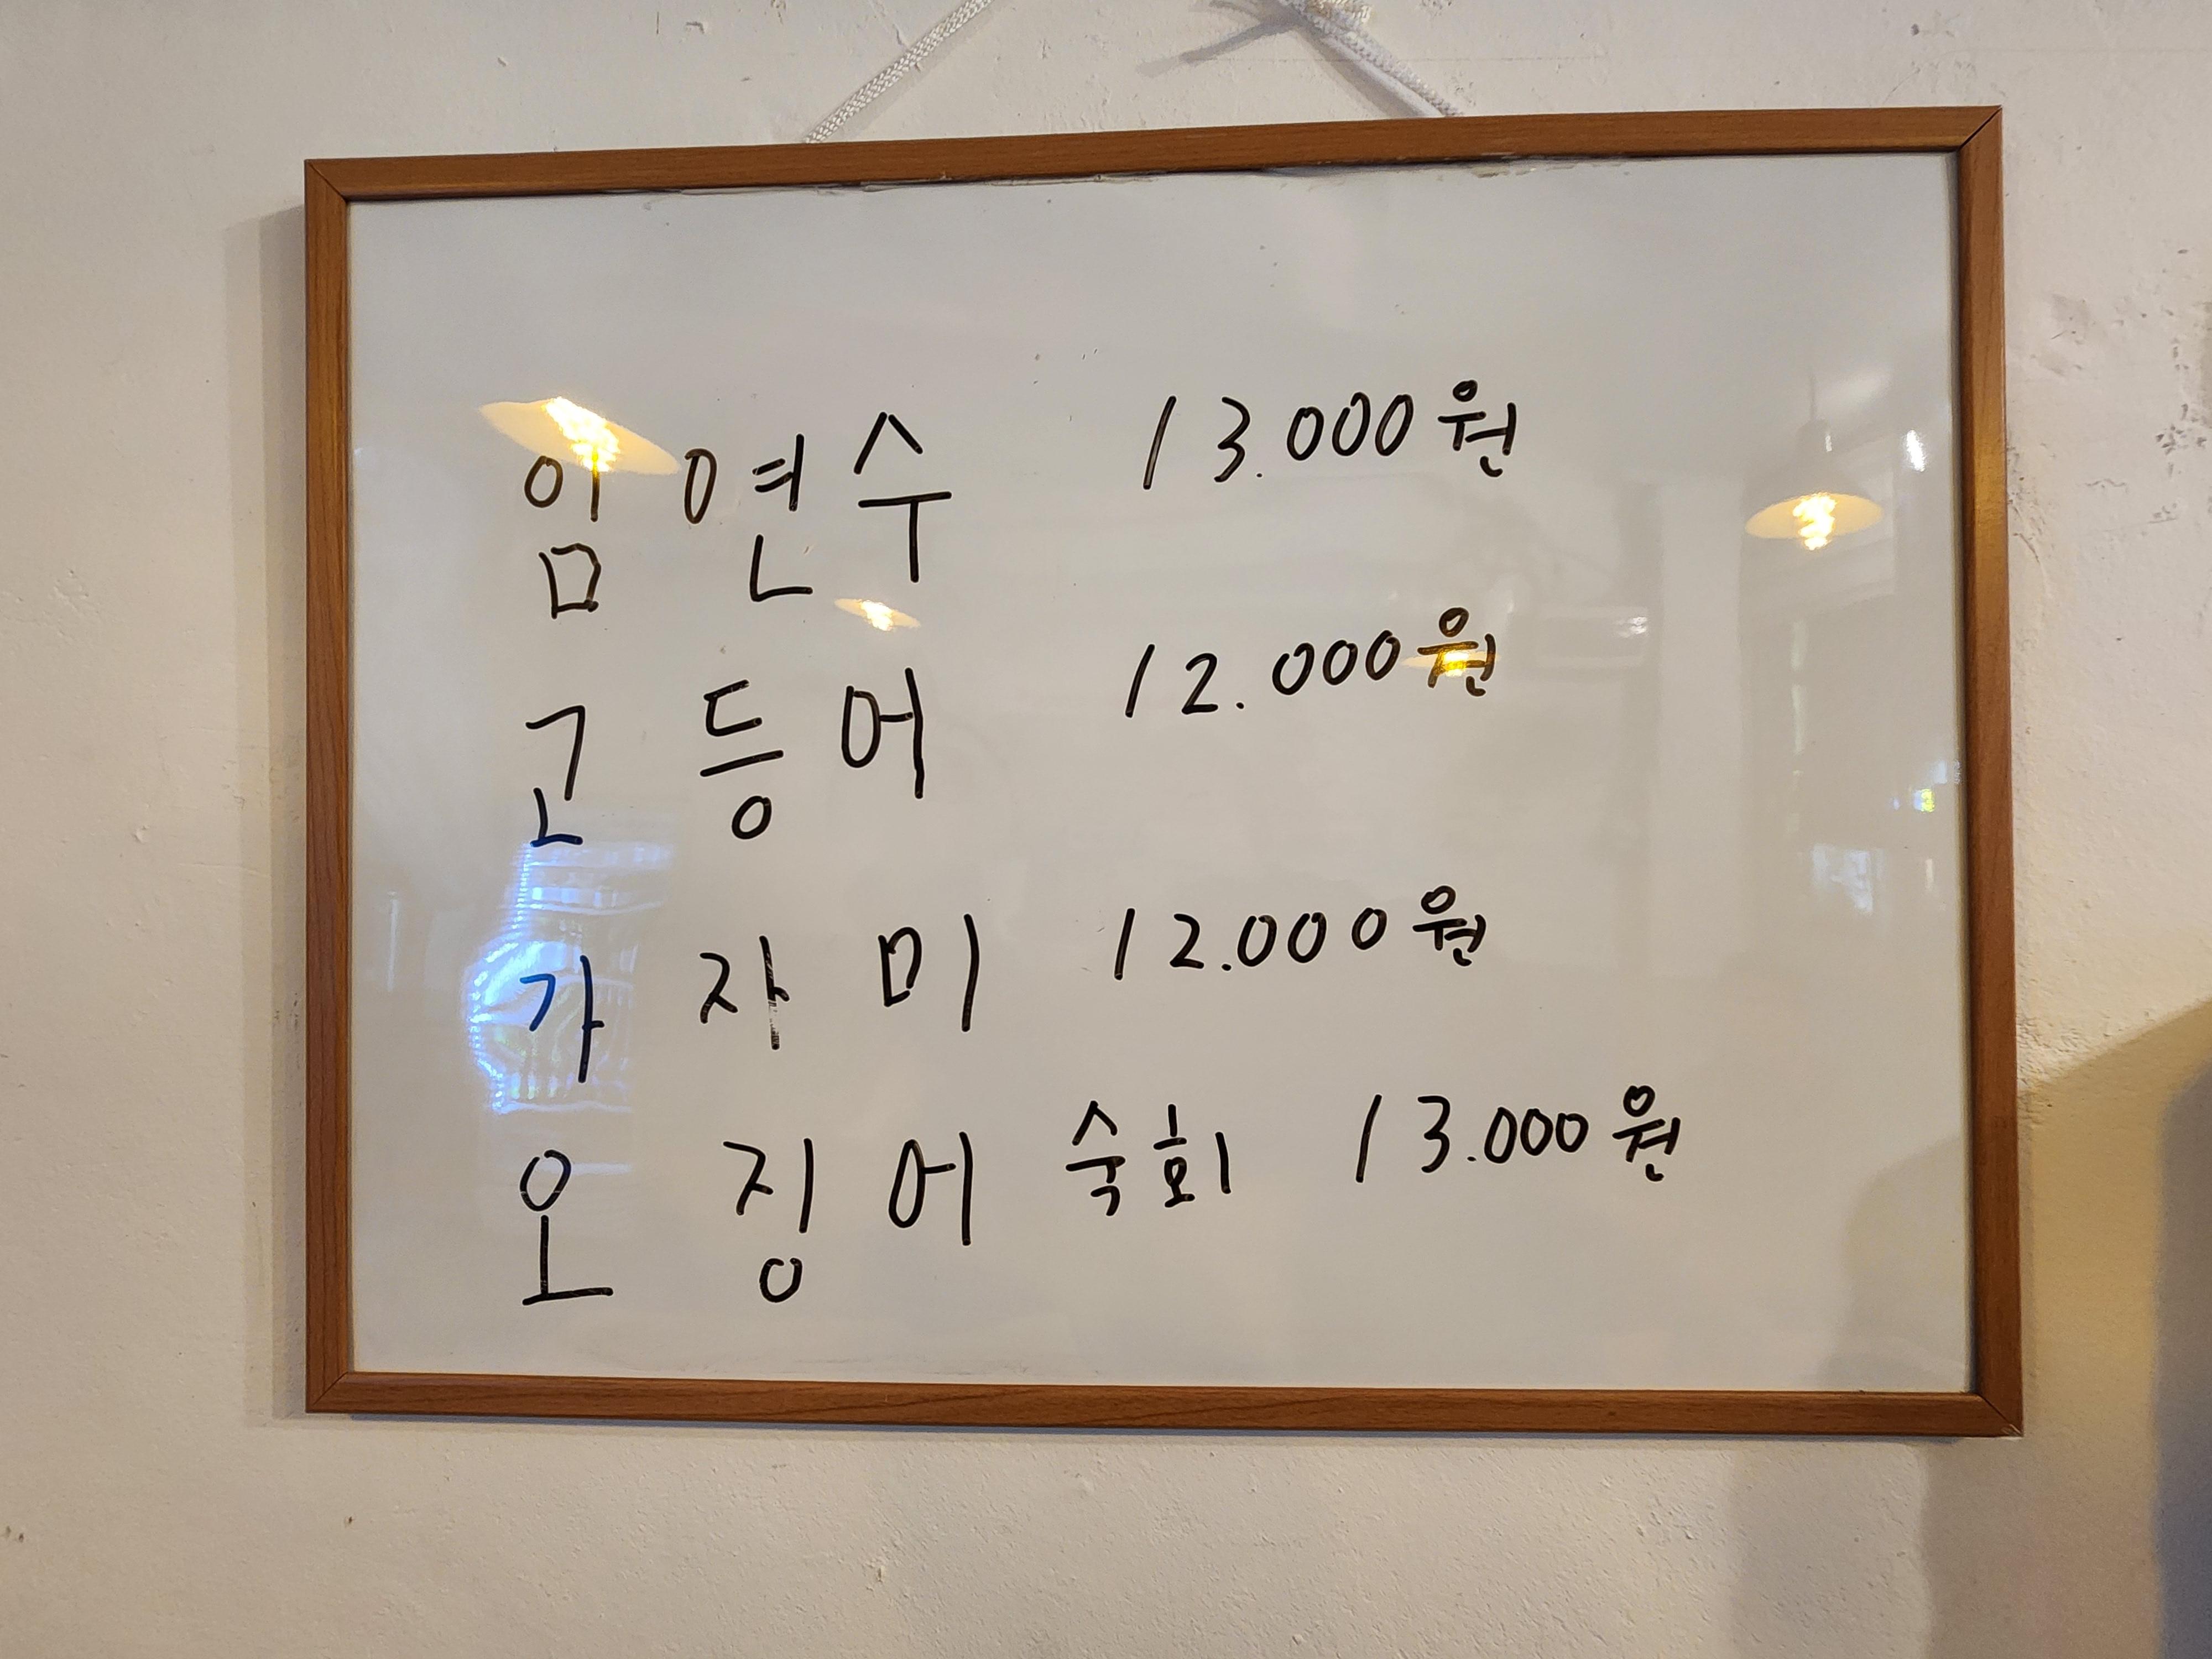 임연수 13.000원
고등어 12.000원
가자미 12.000원
오징어숙회 13.000원